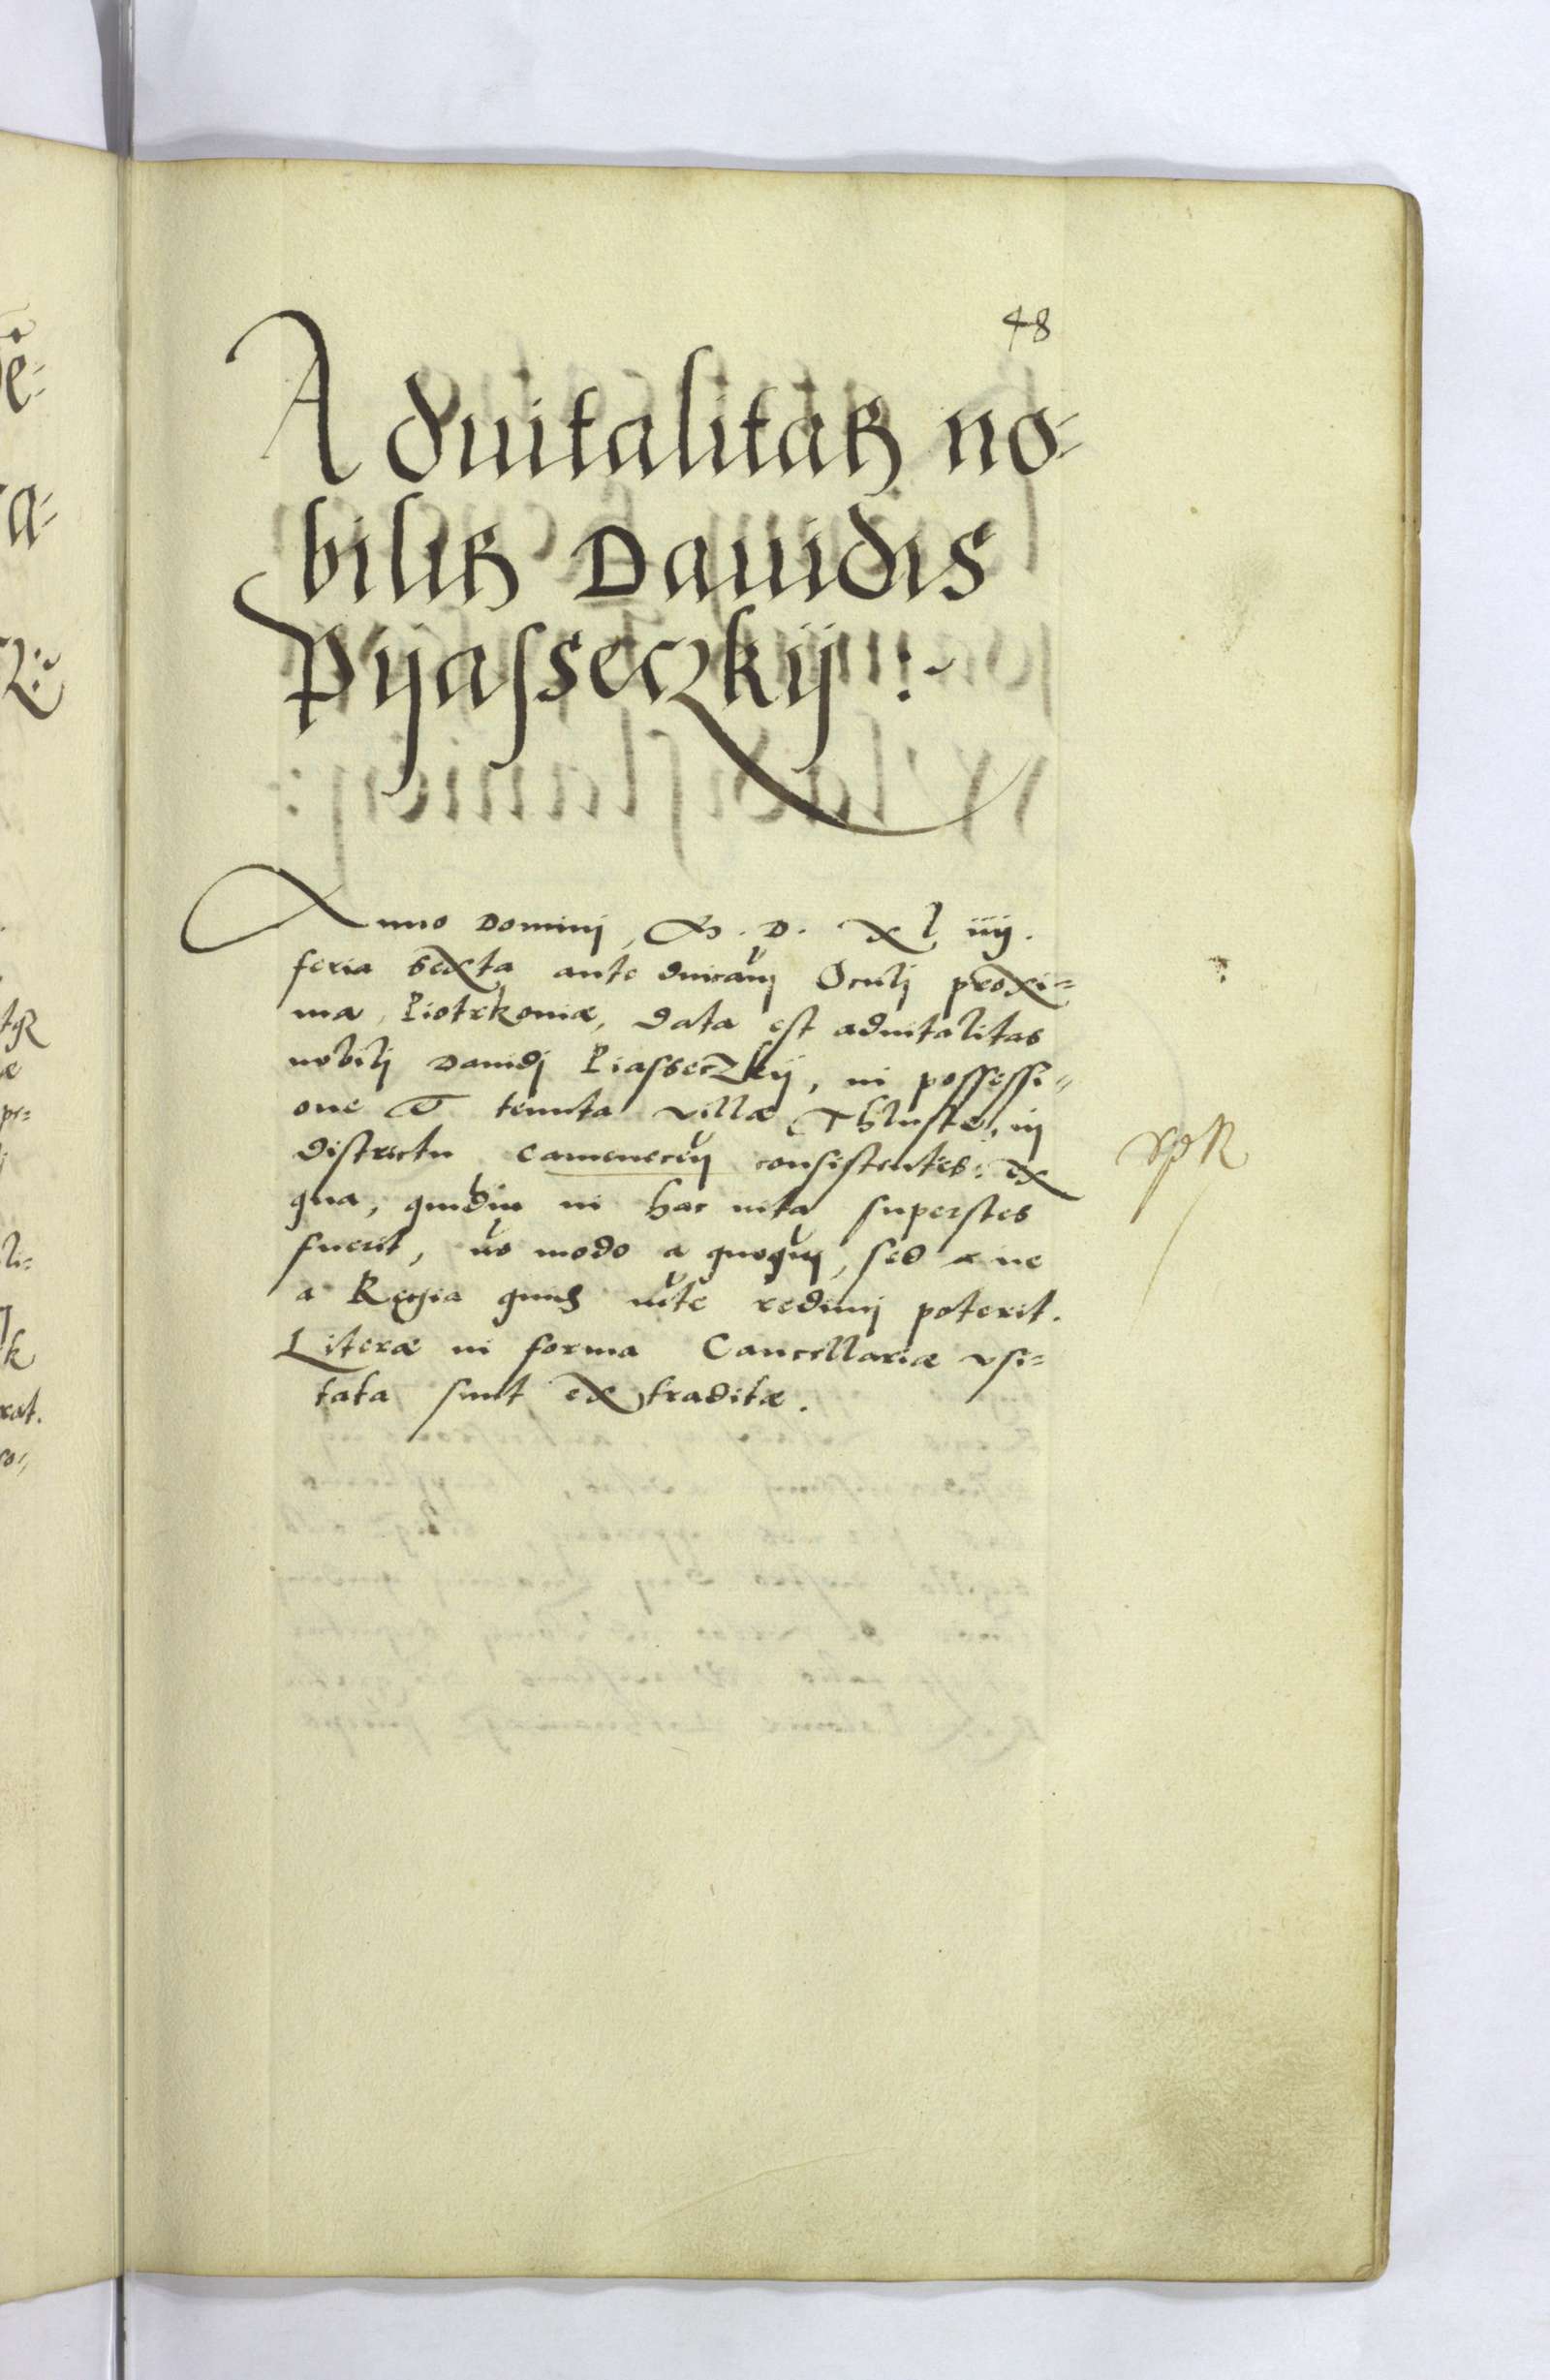 48
Aduitalitas no-
bilis Dauidis
Pijasseczkij :~
Anno Dominj, M. D. XL iiij.
feria sexta ante dnicam Oculj proxi=
ma, Piotrkouiæ, data est aduitalitas
nobilj Dauidj Piasseczkij, in possessi=
one et tenuta villæ Thluste, in
districtu camenecen consistentis: ex
qua, qudiu in hac uita superstes
fuerit, no modo a quoqum, sed ne
a Regia quidem redimj poterit.
Literæ in forma Cancellariæ vsi=
tata sunt extraditæ.